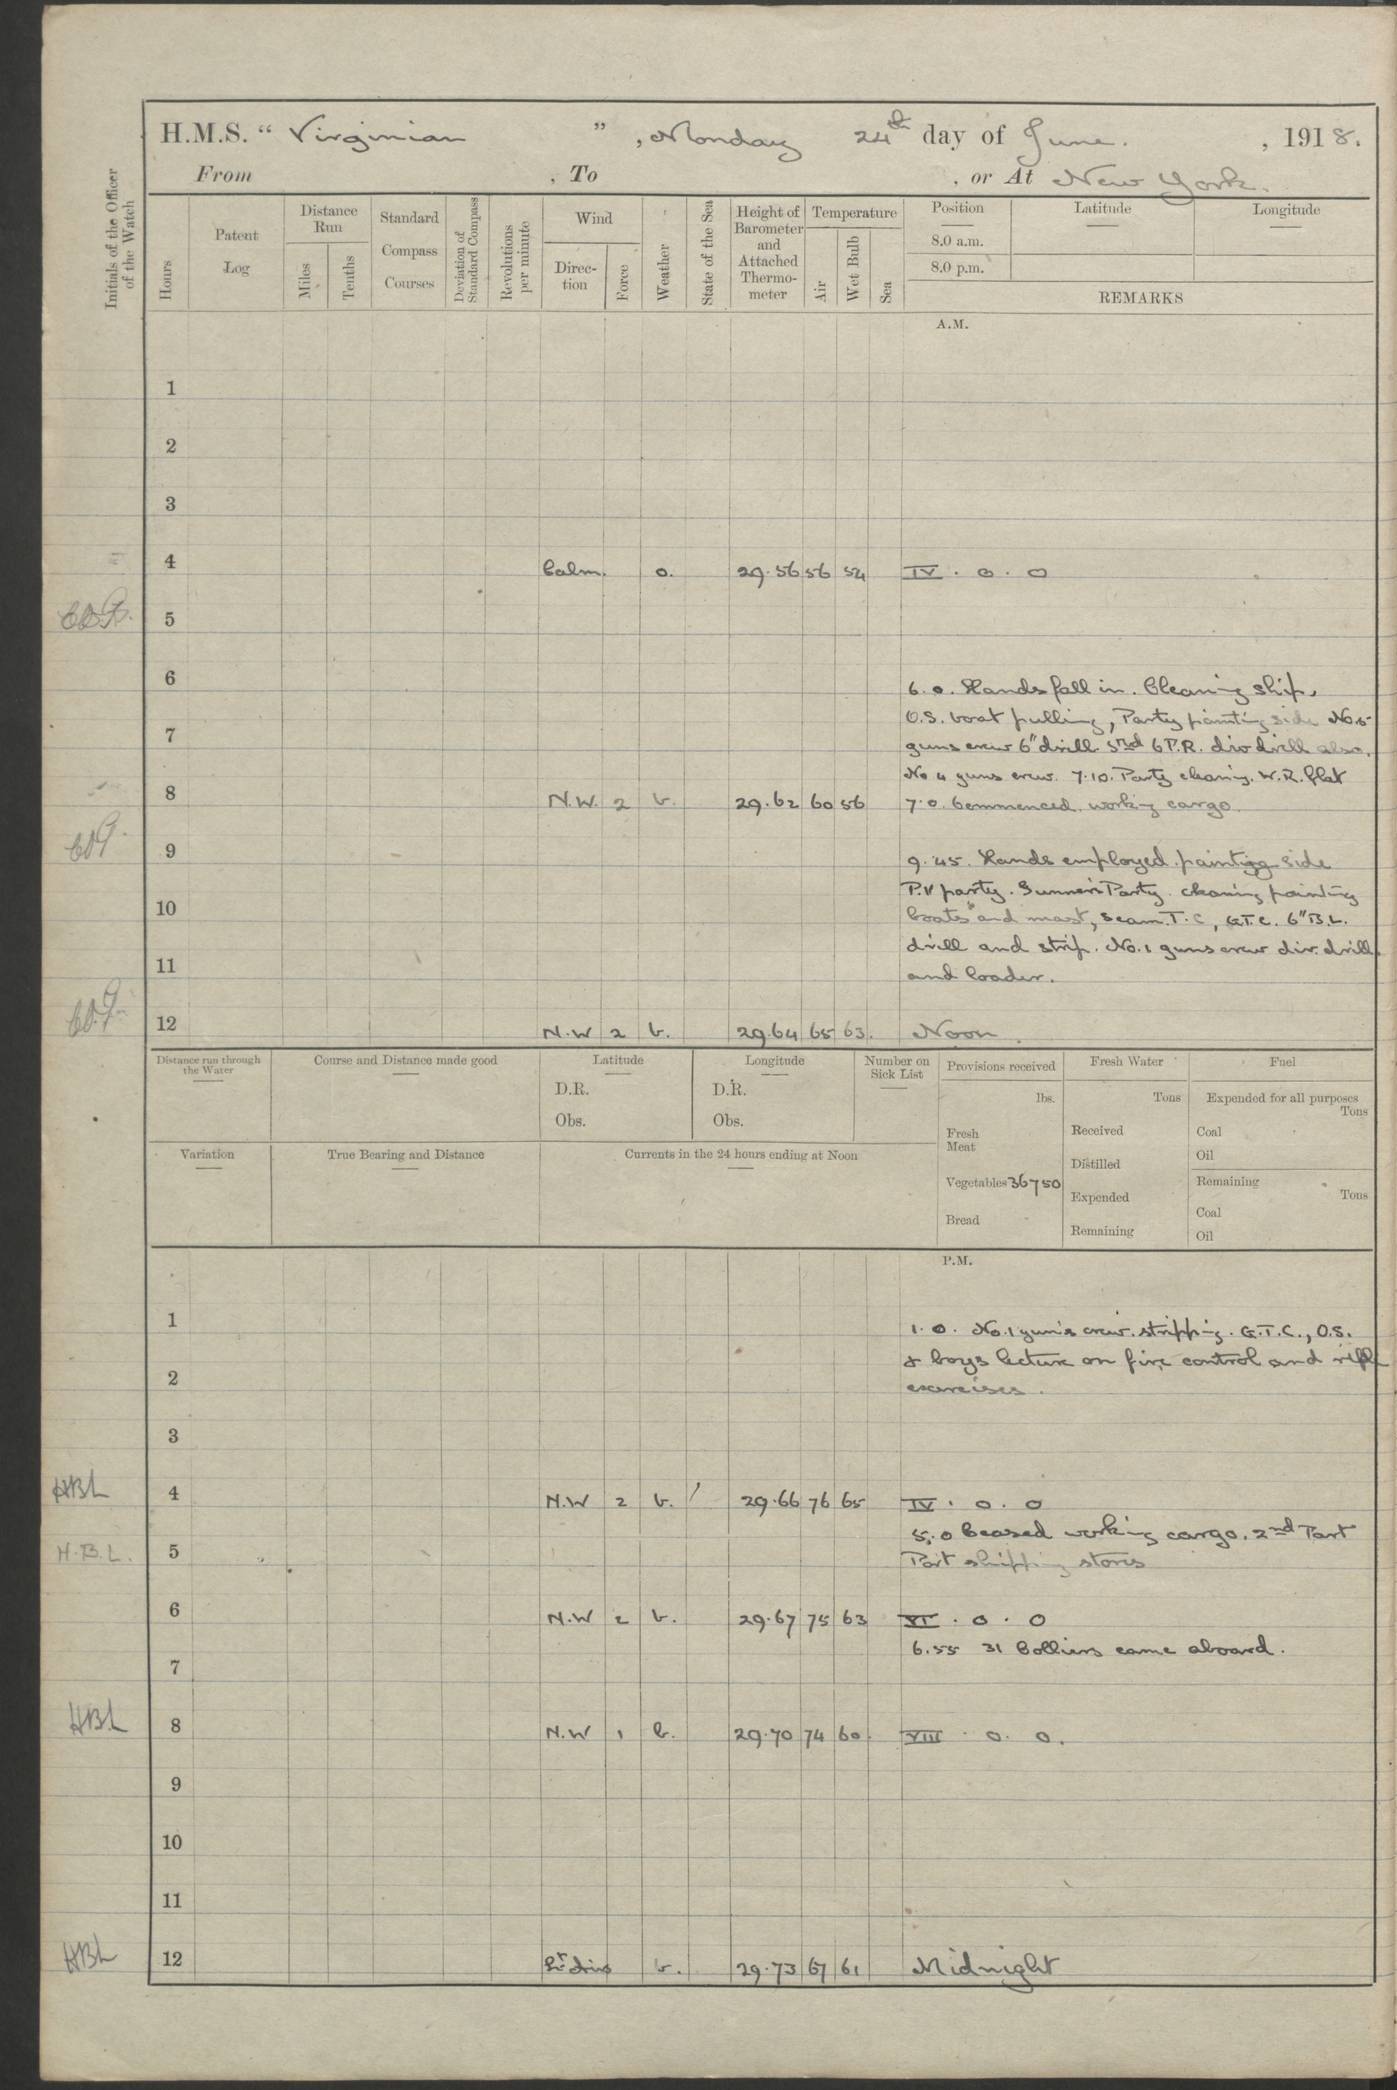 H.M.S. “ Virginian ” , Monday 24th day of June. , 1918.
From , To , or At New York.
Initials of the Officer of the Watch
Hours
Patent Log
Distance Run
Miles
Tenths
Standard Compass Courses
Deviation of Standard Compass
Revolutions per minute
Wind
Direc- tion
Force
Weather
State of the Sea
Height of Barometer and Attached Thermo- meter
Temperature
Air
Wet Bulb
Sea
Position Latitude Longitude
8.0 a.m.
8.0 p.m.
REMARKS
A.M.
1
2
3
4 Calm. o. 29.56 56 54 IV . o . o
5
6
6.0. Hands fall in. Cleaning ship.
O.S. boat pulling, Party painting side No.5
7
guns crew 6" drill. 6 P.R. div drill also.
No 4 guns crew. 7.10. Party cleaning. W.R. flat
8 N.W. 2 b. 29.62 60 56 7.0. Commenced working cargo.
9
9.45. Hands employed painting side
P.V party. Gunners Party. cleaning painting
10
boats and mast, Seam. T.C, G.T.C. 6" B.L.
drill and strip. No.1 guns crew div. drill
11
and loader.
12 N.W 2 b. 29.64 65 63. Noon.
Distance run through the Water
Course and Distance made good
Latitude
D.R.
Obs.
Longitude
D.R.
Obs.
Number on Sick List
Provisions received
lbs.
Fresh Meat
Vegetables 36750
Bread
Fresh Water
Tons
Received
Distilled
Expended
Remaining
Fuel
Expended for all purposes
Tons
Coal
Oil
Remaining
Tons
Coal
Oil
Variation
True Bearing and Distance
Currents in the 24 hours ending at Noon
P.M.
1
1.0. No.1 gun's crew. stripping. G.T.C., O.S.
& boys lecture on fire control and rifle
2
exercises.
3
HBL 4 N.W 2 b. 29.66 76 65 IV . o . o
5.0 Ceased working cargo. 2nd Part
H.B.L. 5
Port shipping stores
6 N.W 2 b. 29.67 75 63 VI . o . o
6.55 31 Colliers came aboard.
7
HBL 8 N.W 1 b. 29.70 74 60. VIII . o. o.
9
10
11
HBL 12 Lt airs b. 29.73 67 61 Midnight